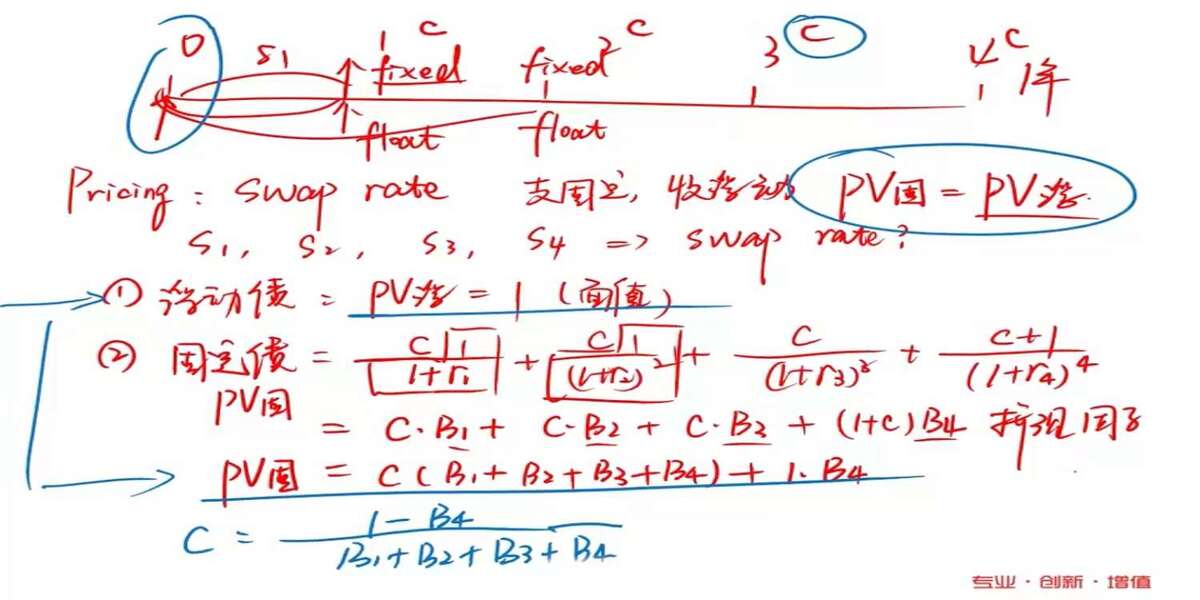 0 S1 1 C 2 C 3 C 4 C 1年
fixed fixed
float float
Pricing : swap rate 支固定, 收浮动 PV固 = PV浮.
S1, S2, S3, S4 => swap rate?
① 浮动债 : PV浮 = 1 (面值)
② 固定债 = C⌈1⌉/(1+r1) + C⌈1⌉/(1+r2)² + C/(1+r3)³ + C+1/(1+r4)⁴
PV固
= C·B1 + C·B2 + C·B3 + (1+C)B4 折现因子
PV固 = C(B1+B2+B3+B4)+1·B4
C = 1-B4/B1+B2+B3+B4
专业·创新·增值